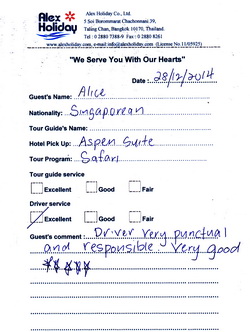 Alex Holiday
Alex Holiday Co., Ltd.
5 Soi Borommarat Chachonnani 39,
Taling Chan, Bangkok 10170, Thailand.
Tel : 0 2880 7388-9 Fax : 0 2880 8261
www.alexholiday.com, e-mail:info@alexholiday.com (License No.11/05925)
"We Serve You With Our Hearts"
Date : 28/12/2014
Guest's Name: Alice
Nationality: Singaporean
Tour Guide's Name:
Hotel Pick Up: Aspen Suite
Tour Program: Safari
Tour guide service
Excellent Good Fair
Driver service
Excellent Good Fair
Guest's comment Driver very punctual
and responsible. Very good